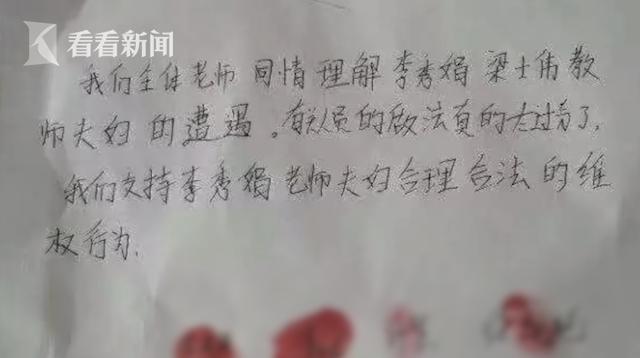 看看新闻
我们全体老师 同情 理解 李秀娟 梁士伟教
师夫妇 的遭遇。有关人员的做法真的太过分了,
我们支持李秀娟老师夫妇合理合法的维
权行为.